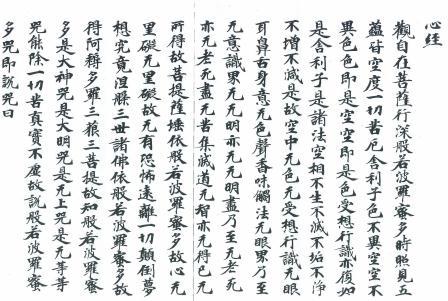 心經
觀自在菩薩行深般若波羅蜜多時照見五
蘊皆空度一切苦厄舍利子色不異空空不
異色色即是空空即是色受想行識亦復如
是舍利子是諸法空相不生不滅不垢不淨
不增不減是故空中无色无受想行識无眼
耳鼻舌身意无色聲香味觸法无眼界乃至
无意識界无无明亦无无明盡乃至无老死
亦无老死盡无苦集滅道无智亦无得已无
所得故菩提薩埵依般若波羅蜜多故心无
罣礙无罣礙故无有恐怖遠離一切顛倒夢
想究竟涅槃三世諸佛依般若波羅蜜多故
得阿耨多羅三藐三菩提故知般若波羅蜜
多是大神咒是大明咒是无上咒是无等等
咒能除一切苦真實不虛故說般若波羅蜜
多咒即說咒曰